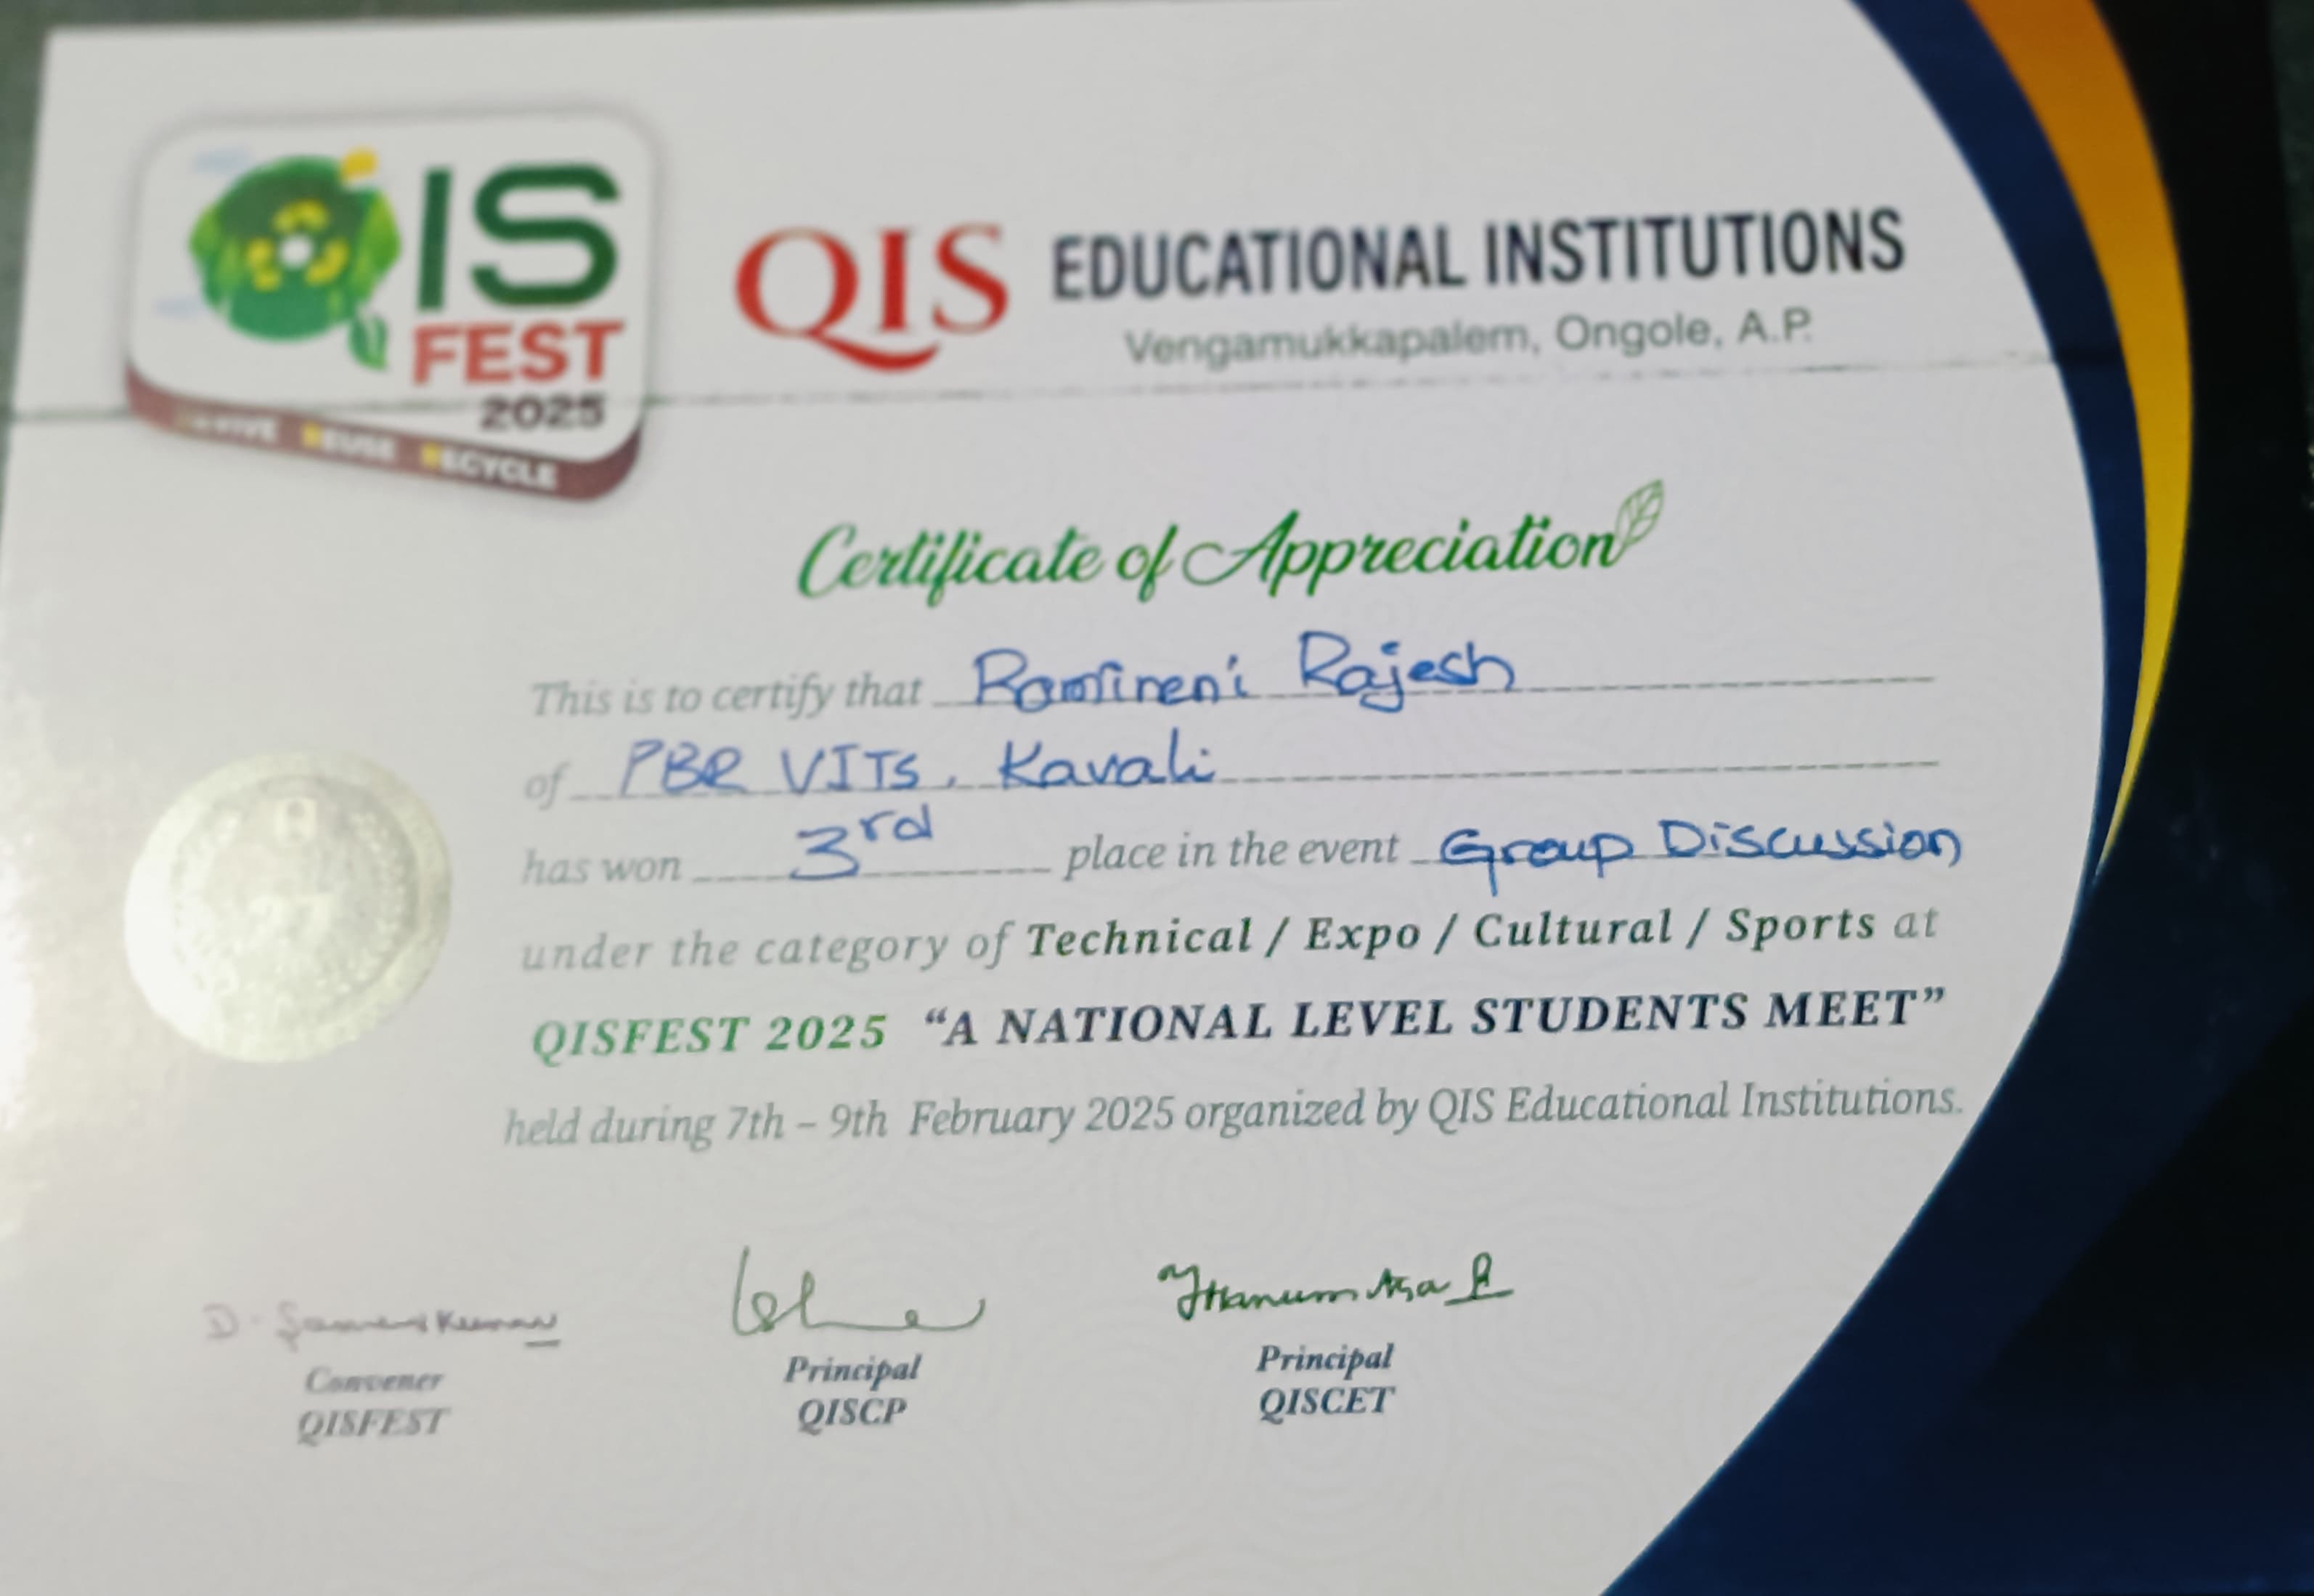 IS
FEST
2025
REUSE RECYCLE
QIS EDUCATIONAL INSTITUTIONS
Vengamukkapalem, Ongole, A.P.
Certificate of Appreciation
This is to certify that Ramineni Rajesh
of PBR VITS, Kavali
has won 3rd place in the event Group Discussion
under the category of Technical / Expo / Cultural / Sports at
QISFEST 2025 “A NATIONAL LEVEL STUDENTS MEET”
held during 7th – 9th February 2025 organized by QIS Educational Institutions.
Convener
QISFEST
Principal
QISCP
Principal
QISCET